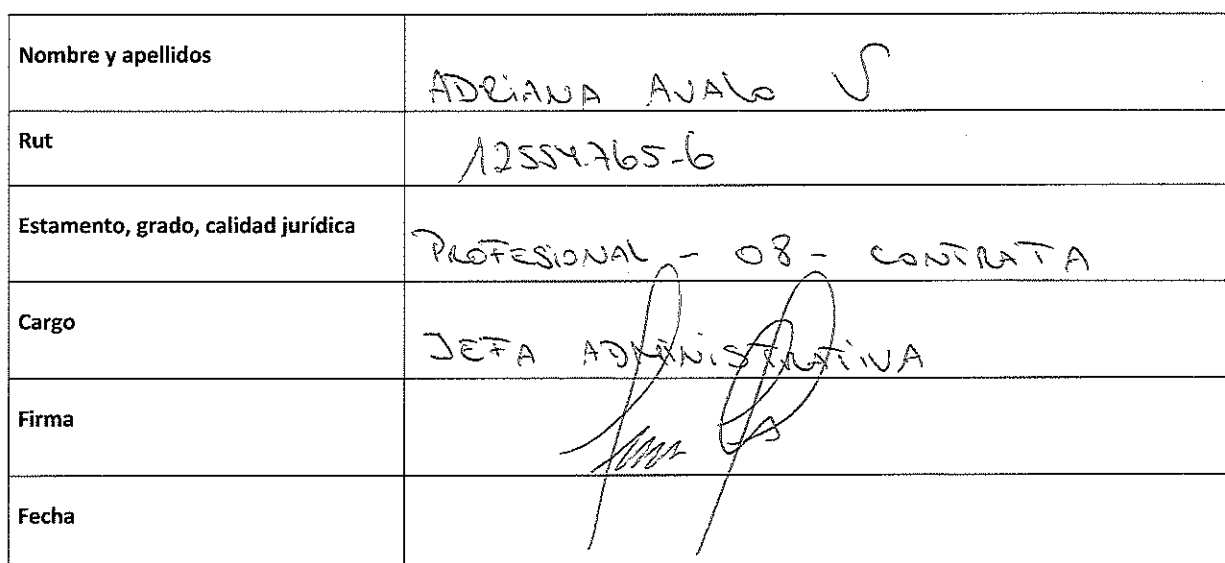 Nombre y apellidos
ADRIANA AVALO V
Rut
12554.765-6
Estamento, grado, calidad jurídica
PROFESIONAL - 08 - CONTRATA
Cargo
JEFA ADMINISTRATIVA
Firma
Fecha